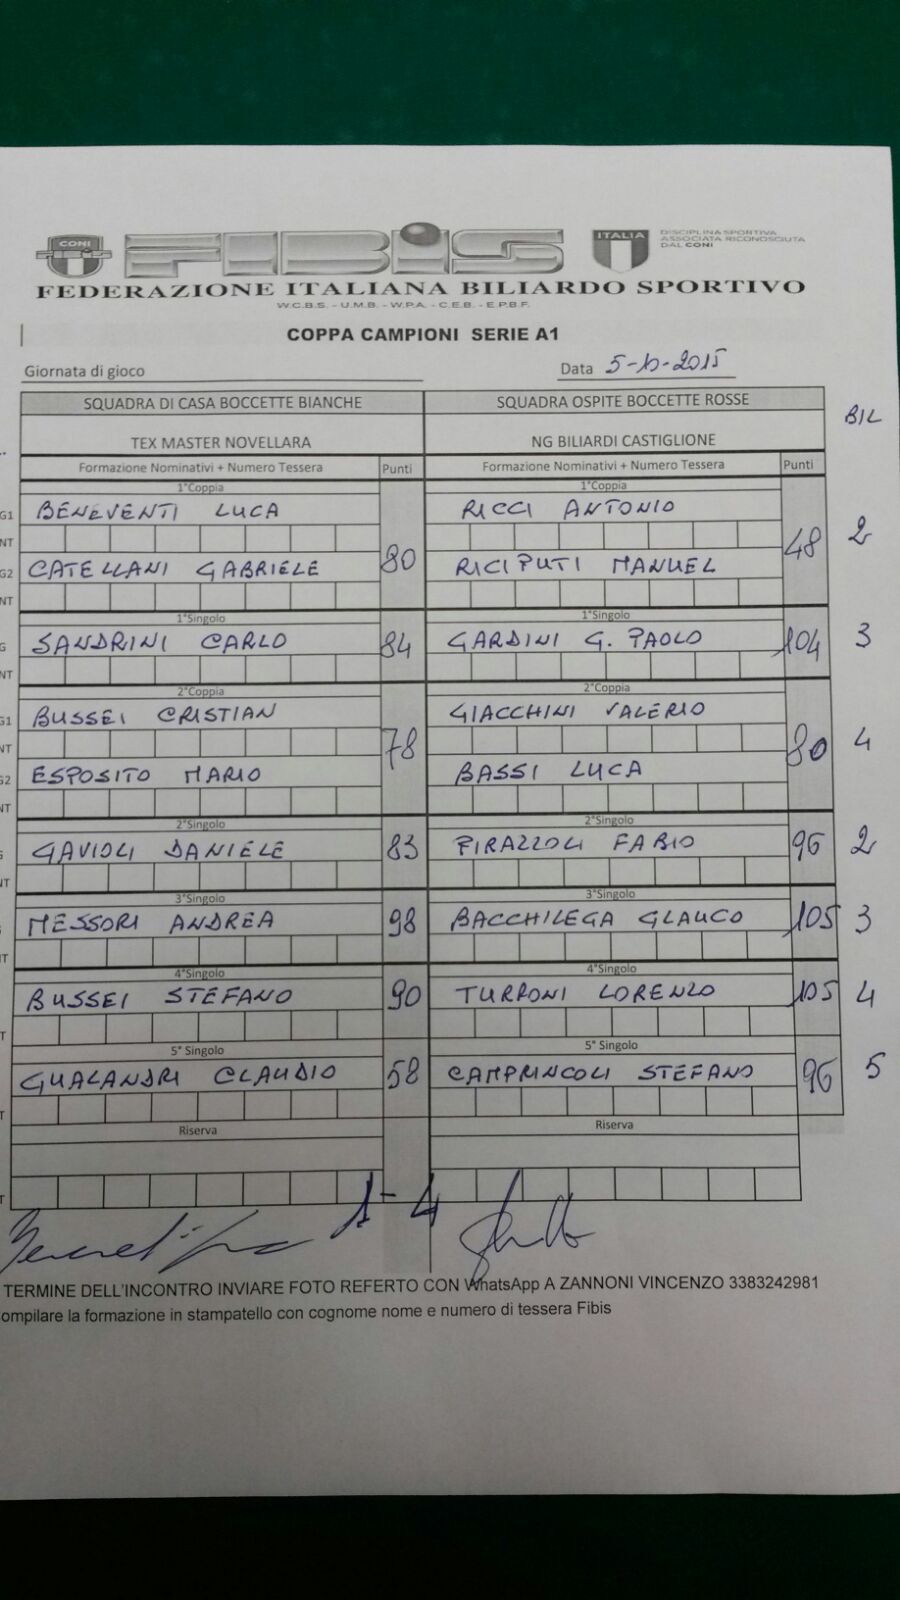 CONI FIBiS ITALIA DISCIPLINA SPORTIVA
ASSOCIATA RICONOSCIUTA
DAL CONI
FEDERAZIONE ITALIANA BILIARDO SPORTIVO
W.C.B.S. - U.M.B. - W.P.A. - C.E.B. - E.P.B.F.
COPPA CAMPIONI SERIE A1
Giornata di gioco Data 5-10-2015
SQUADRA DI CASA BOCCETTE BIANCHE SQUADRA OSPITE BOCCETTE ROSSE BIL
TEX MASTER NOVELLARA NG BILIARDI CASTIGLIONE
Formazione Nominativi + Numero Tessera Punti Formazione Nominativi + Numero Tessera Punti
1°Coppia 1°Coppia
G1 BENEVENTI LUCA RICCI ANTONIO
NT 80 48 2
G2 CATELLANI GABRIELE RICIPUTI MANUEL
NT
1°Singolo 1°Singolo
G SANDRINI CARLO 84 GARDINI G. PAOLO 104 3
NT
2°Coppia 2°Coppia
G1 BUSSEI CRISTIAN GIACCHINI VALERIO
NT 78 80 4
G2 ESPOSITO MARIO BASSI LUCA
NT
2°Singolo 2°Singolo
GAVIOLI DANIELE 83 PIRAZZOLI FABIO 96 2
NT
3°Singolo 3°Singolo
MESSORI ANDREA 98 BACCHILEGA GLAUCO 105 3
4°Singolo 4°Singolo
BUSSEI STEFANO 90 TURRONI LORENZO 105 4
T
5° Singolo 5° Singolo
GUALANDRI CLAUDIO 58 CAMPRINCOLI STEFANO 96 5
T
Riserva Riserva
T
1-4
TERMINE DELL'INCONTRO INVIARE FOTO REFERTO CON WhatsApp A ZANNONI VINCENZO 3383242981
ompilare la formazione in stampatello con cognome nome e numero di tessera Fibis